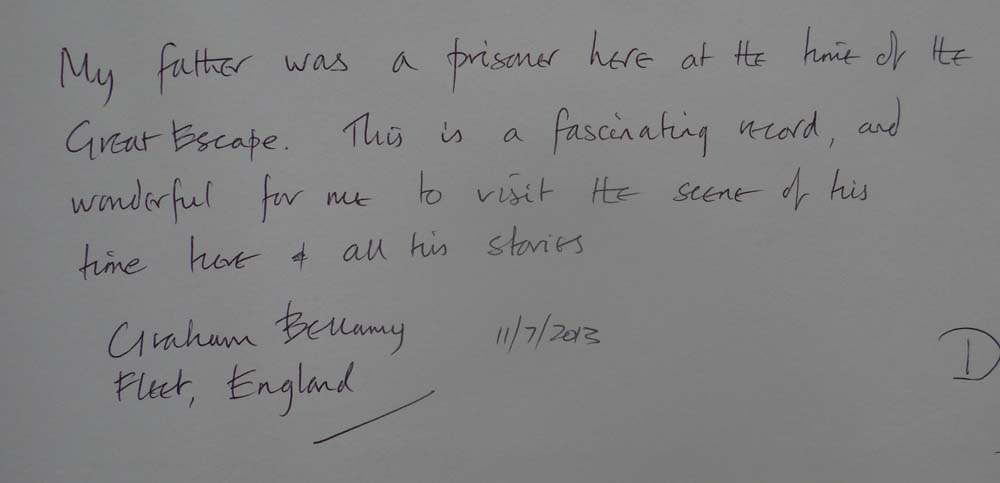 My father was a prisoner here at the time of the
Great Escape. This is a fascinating record, and
wonderful for me to visit the scene of his
time here & all his stories
Graham Bellamy 11/7/2013
Fleet, England
D